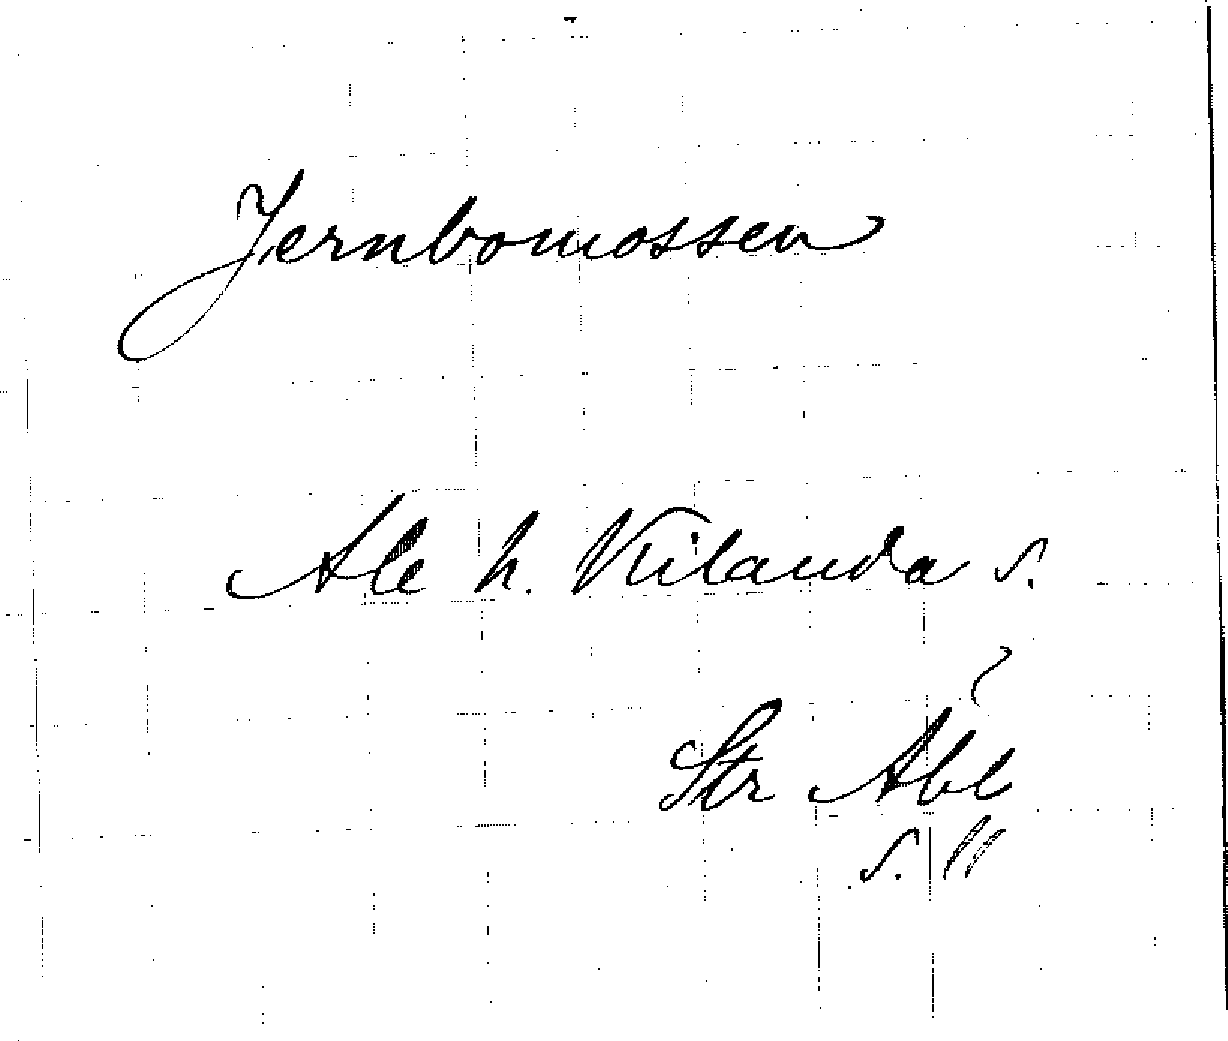 Jernbomossen
Ale h. Kilanda s.
Str Åbl
s. 11